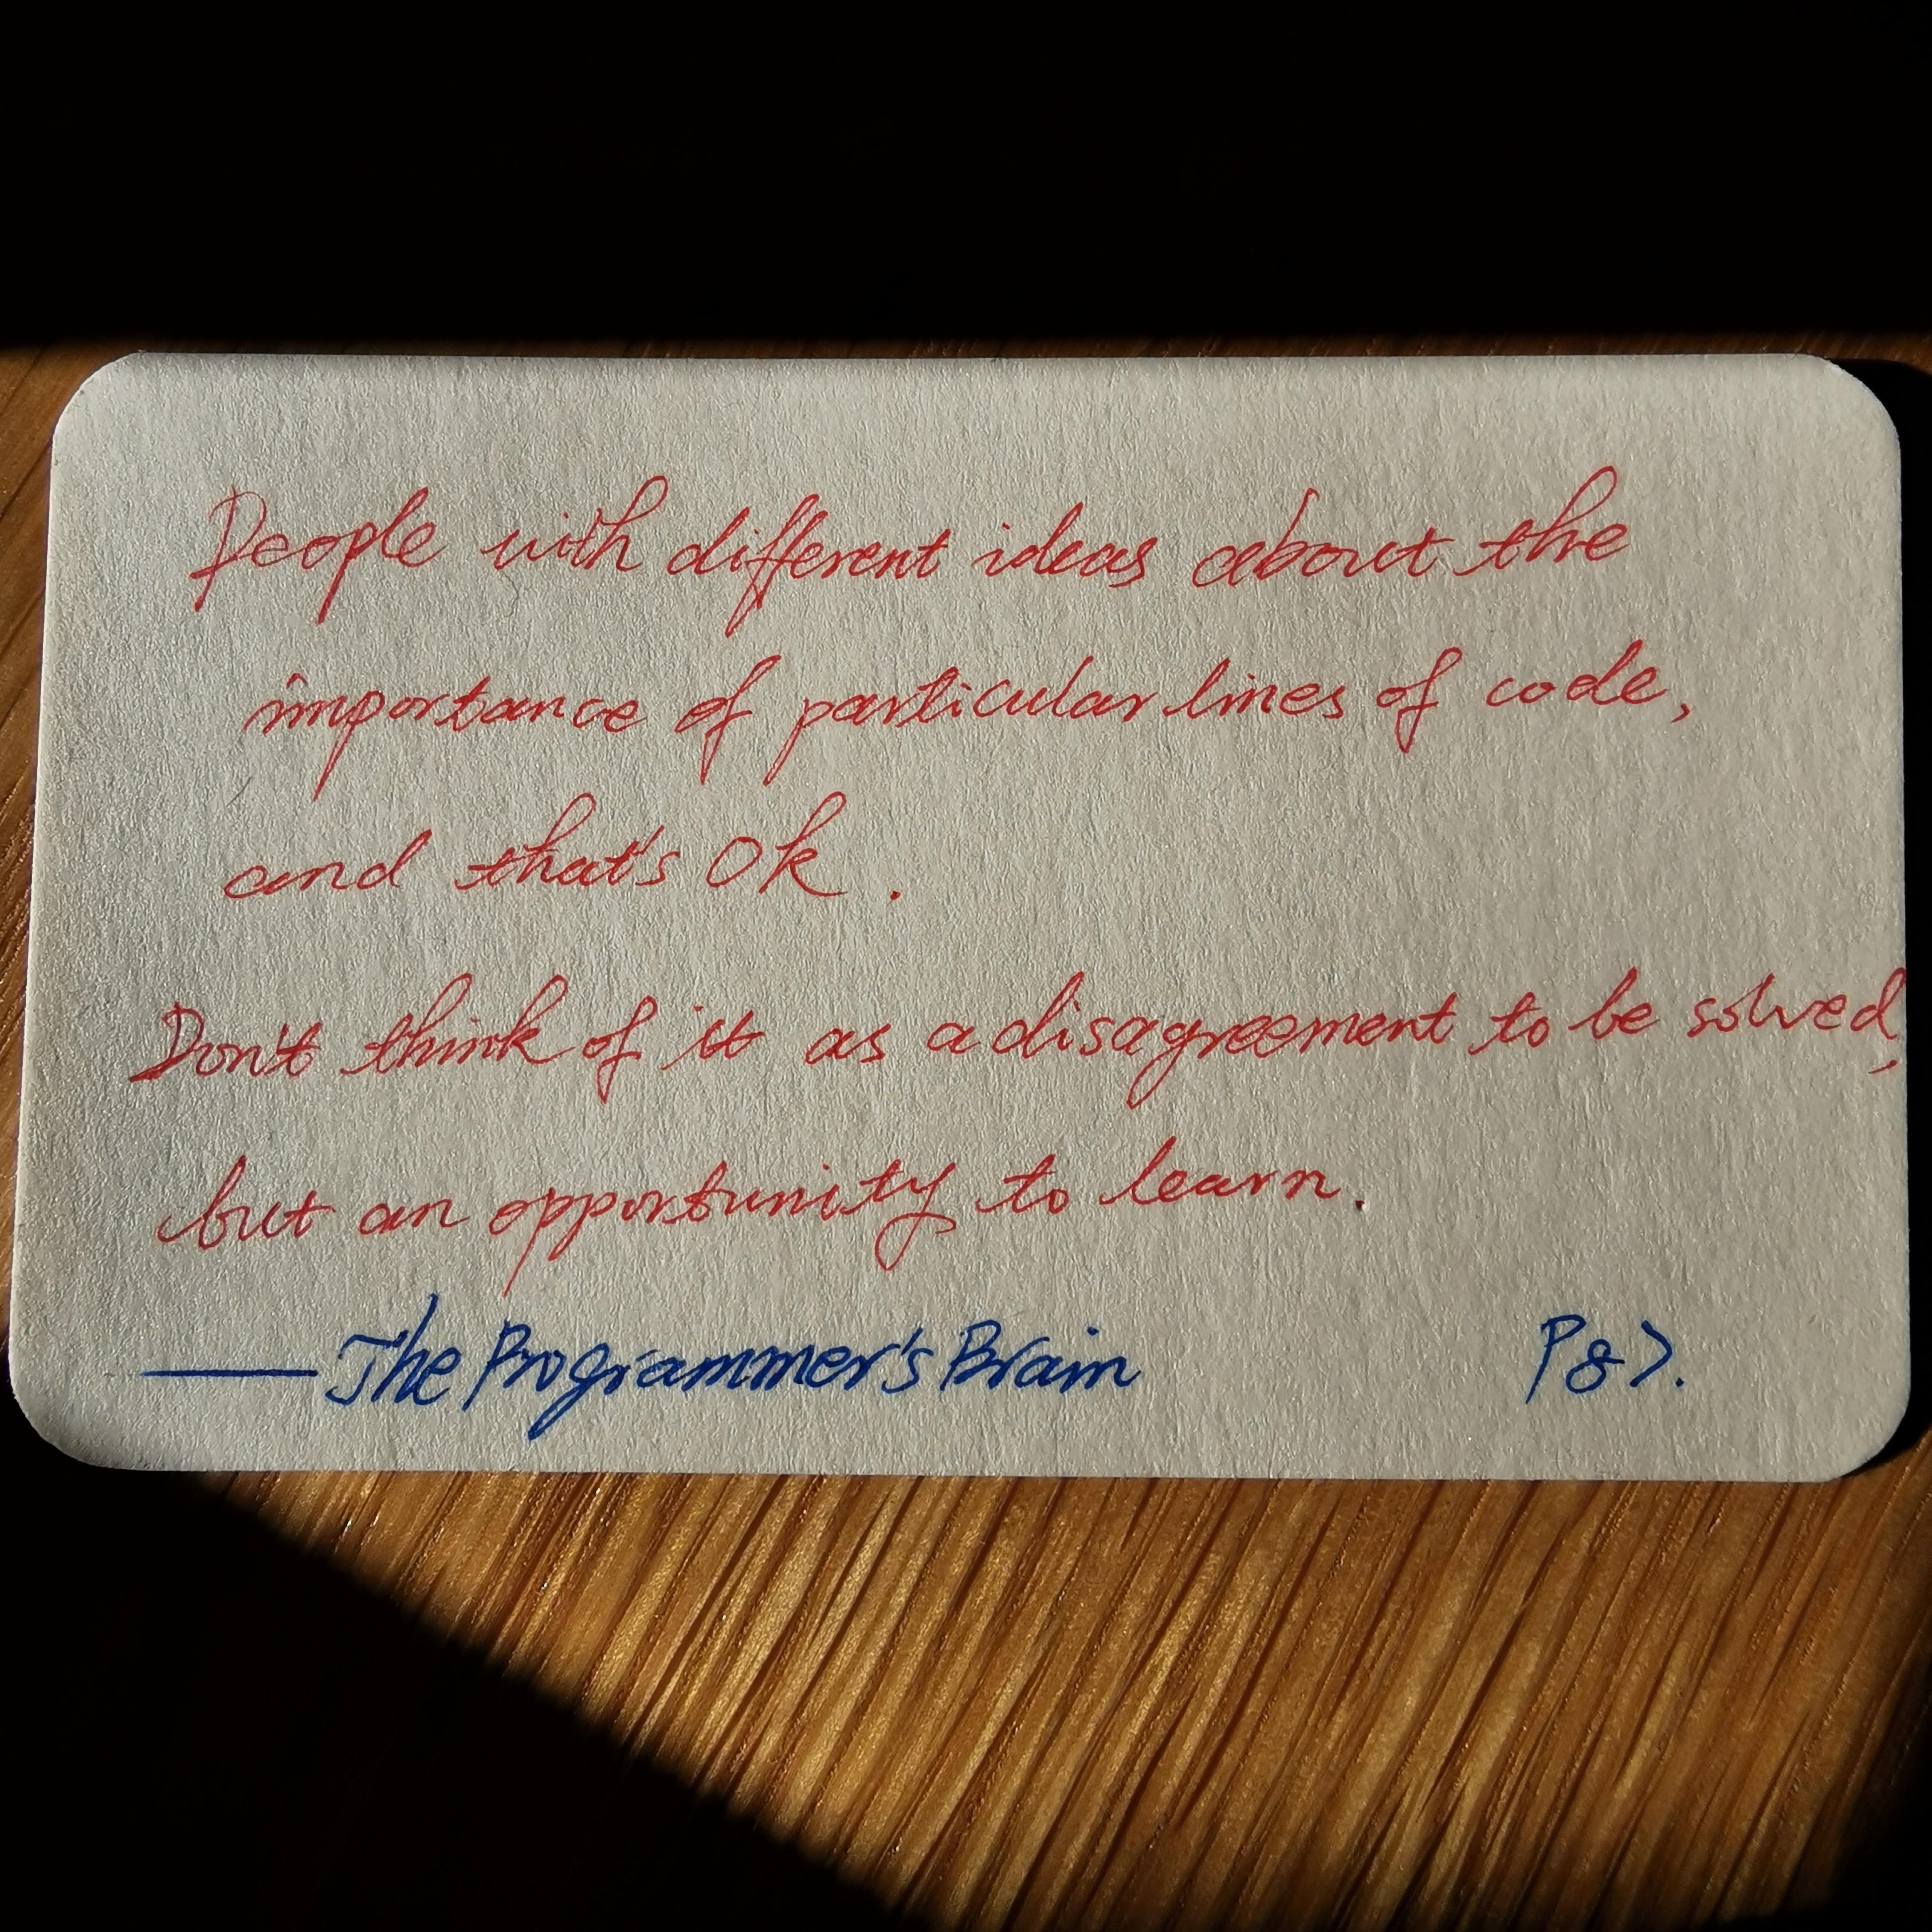 People with different ideas about the
importance of particular lines of code,
and that's Ok.
Don't think of it as a disagreement to be solved,
but an opportunity to learn.
—— The Programmer's Brain P87.